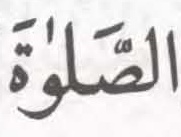 الصَّلَوٰةَ